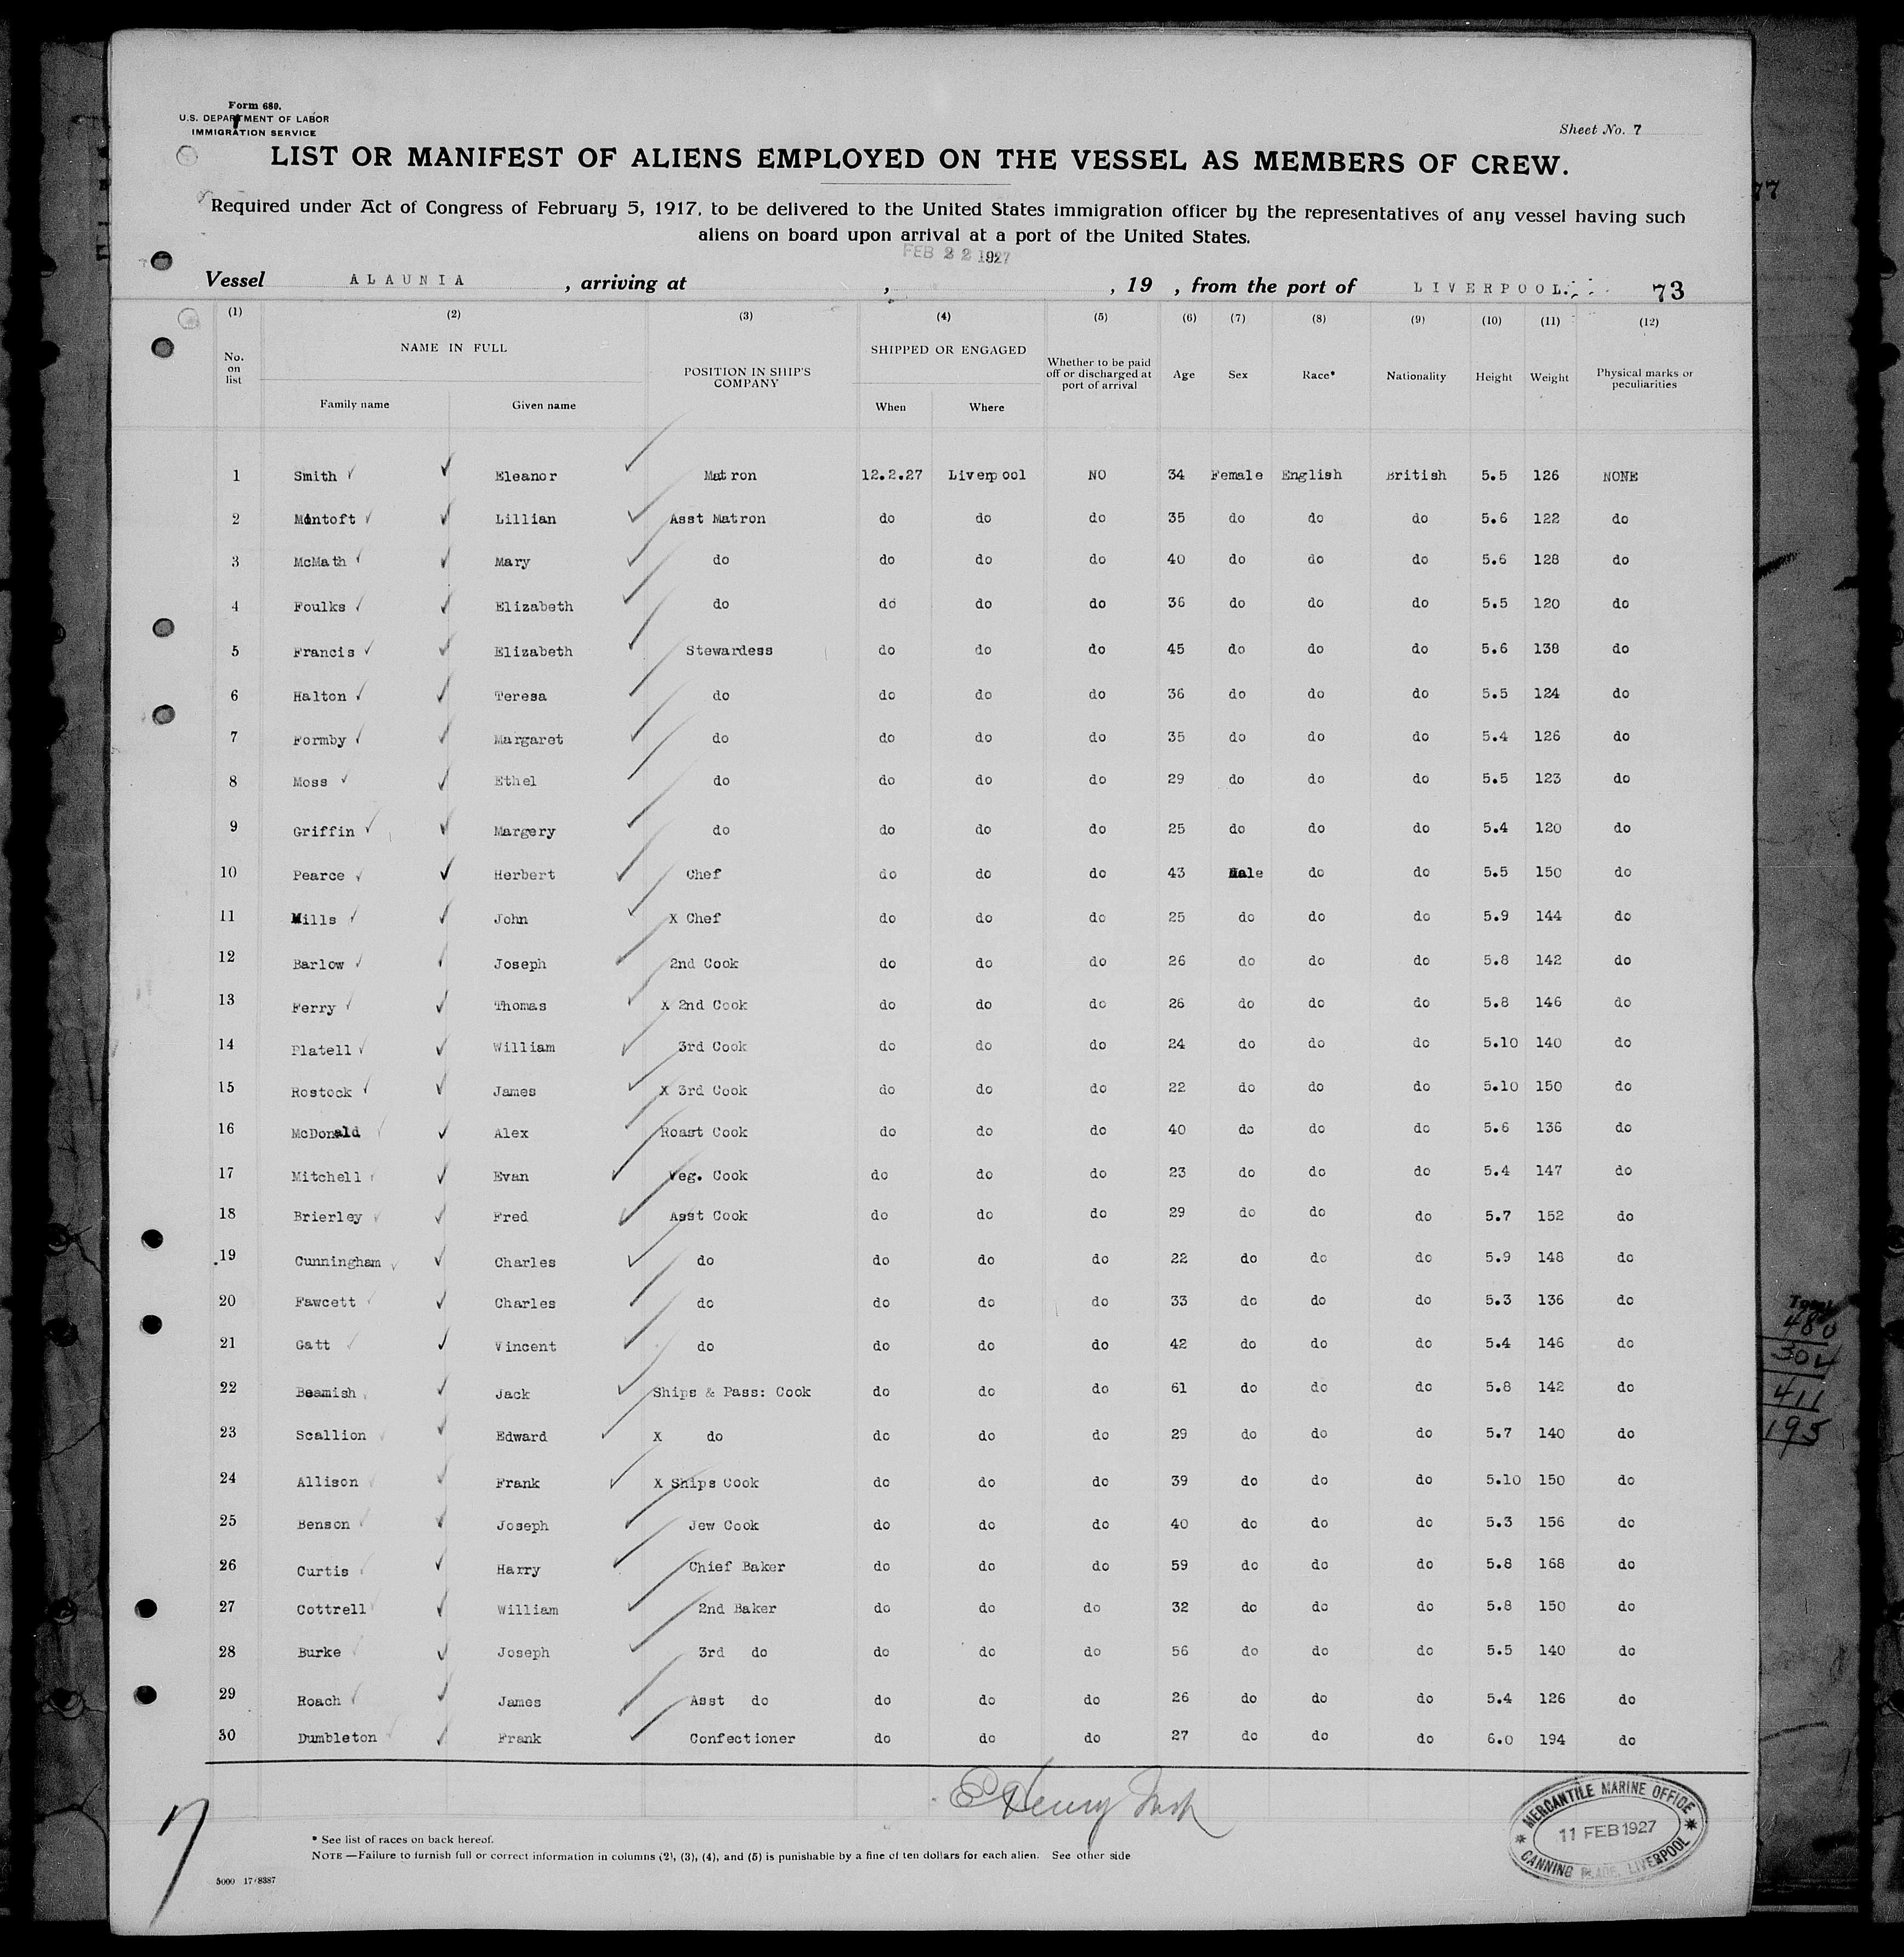 Form 680.
U.S. DEPARTMENT OF LABOR
IMMIGRATION SERVICE
Sheet No. 7
LIST OR MANIFEST OF ALIENS EMPLOYED ON THE VESSEL AS MEMBERS OF CREW.
Required under Act of Congress of February 5, 1917, to be delivered to the United States immigration officer by the representatives of any vessel having such
aliens on board upon arrival at a port of the United States.
FEB 22 1927
Vessel ALAUNIA, arriving at , , 19 , from the port of LIVERPOOL. 73
(1) (2) (3) (4) (5) (6) (7) (8) (9) (10) (11) (12)
No. on list NAME IN FULL Family name Given name POSITION IN SHIP'S COMPANY SHIPPED OR ENGAGED When Where Whether to be paid off or discharged at port of arrival Age Sex Race* Nationality Height Weight Physical marks or peculiarities
1 Smith Eleanor Matron 12.2.27 Liverpool NO 34 Female English British 5.5 126 NONE
2 Mintoft Lillian Asst Matron do do do 35 do do do 5.6 122 do
3 McMath Mary do do do do 40 do do do 5.6 128 do
4 Foulks Elizabeth do do do do 36 do do do 5.5 120 do
5 Francis Elizabeth Stewardess do do do 45 do do do 5.6 138 do
6 Halton Teresa do do do do 36 do do do 5.5 124 do
7 Formby Margaret do do do do 35 do do do 5.4 126 do
8 Moss Ethel do do do do 29 do do do 5.5 123 do
9 Griffin Margery do do do do 25 do do do 5.4 120 do
10 Pearce Herbert Chef do do do 43 Male do do 5.5 150 do
11 Mills John X Chef do do do 25 do do do 5.9 144 do
12 Barlow Joseph 2nd Cook do do do 26 do do do 5.8 142 do
13 Ferry Thomas X 2nd Cook do do do 26 do do do 5.8 146 do
14 Platell William 3rd Cook do do do 24 do do do 5.10 140 do
15 Rostock James X 3rd Cook do do do 22 do do do 5.10 150 do
16 McDonald Alex Roast Cook do do do 40 do do do 5.6 136 do
17 Mitchell Evan Veg. Cook do do do 23 do do do 5.4 147 do
18 Brierley Fred Asst Cook do do do 29 do do do 5.7 152 do
19 Cunningham Charles do do do do 22 do do do 5.9 148 do
20 Fawcett Charles do do do do 33 do do do 5.3 136 do
21 Gatt Vincent do do do do 42 do do do 5.4 146 do
22 Beamish Jack Ships & Pass: Cook do do do 61 do do do 5.8 142 do
23 Scallion Edward X do do do do 29 do do do 5.7 140 do
24 Allison Frank X Ships Cook do do do 39 do do do 5.10 150 do
25 Benson Joseph Jew Cook do do do 40 do do do 5.3 156 do
26 Curtis Harry Chief Baker do do do 59 do do do 5.8 168 do
27 Cottrell William 2nd Baker do do do 32 do do do 5.8 150 do
28 Burke Joseph 3rd do do do do 56 do do do 5.5 140 do
29 Roach James Asst do do do do 26 do do do 5.4 126 do
30 Dumbleton Frank Confectioner do do do 27 do do do 6.0 194 do
Total
480
304
411
195
77
Henry
MERCANTILE MARINE OFFICE
11 FEB 1927
CANNING PLACE, LIVERPOOL
7
* See list of races on back hereof.
NOTE—Failure to furnish full or correct information in columns (2), (3), (4), and (5) is punishable by a fine of ten dollars for each alien. See other side
5000 17/8387